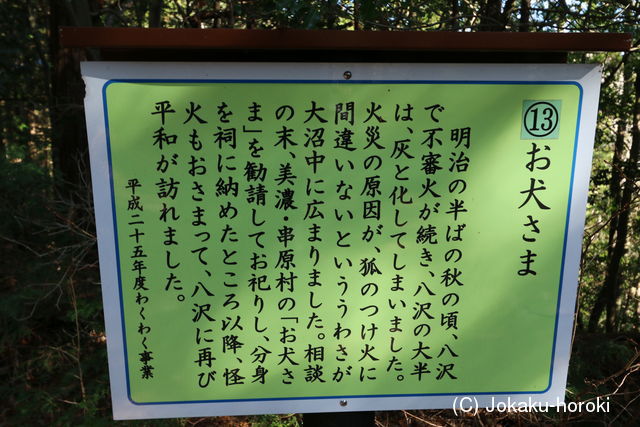 ⑬ お犬さま
明治の半ばの秋の頃、八沢
で不審火が続き、八沢の大半
は、灰と化してしまいました。
火災の原因が、狐のつけ火に
間違いないといううわさが
大沼中に広まりました。相談
の末、美濃・串原村の「お犬さ
ま」を勧請してお祀りし、分身
を祠に納めたところ以降、怪
火もおさまって、八沢に再び
平和が訪れました。
平成二十五年度わくわく事業
(C) Jokaku-horoki